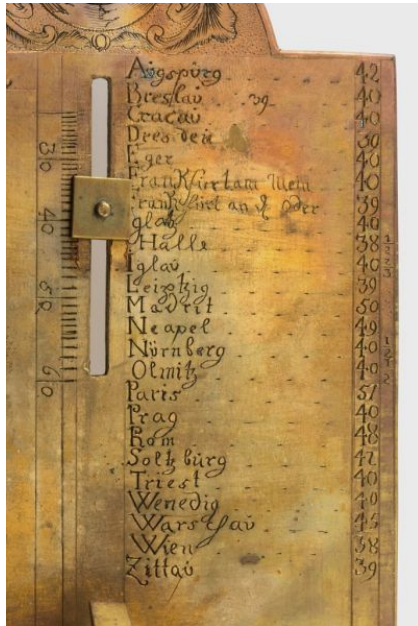 Augspurg 42
Breslau 39 40
Cracau 40
Dresden 39
Eger 40
Franckfurt am Mein 40
Franckfurt an d Oder 39
glatz 40
Halle 38
Iglau 40
Leipzig 39
Madrit 50
Neapel 49
Nürnberg 40
Olmitz 40
Paris 51
Prag 40
Rom 48
Soltzburg 42
Triest 40
Wenedig 40
Warschau 45
Wien 38
Zittau 39
30
40
50
60